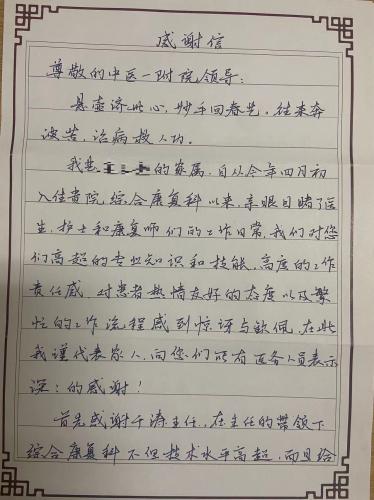 感谢信
尊敬的中医一附院领导：
悬壶济世心，妙手回春艺，往来奔
波苦，治病救人功。
我是的家属，自从今年四月初
入住贵院综合康复科以来，亲眼目睹了医
生、护士和康复师们的工作日常，我们对您
们高超的专业知识和技能、高度的工作
责任感、对患者热情友好的态度以及繁
忙的工作流程感到惊讶与钦佩，在此
我谨代表家人，向您们所有医务人员表示
深：的感谢！
首先感谢于涛主任，在主任的带领下
综合康复科不但技术水平高超，而且给